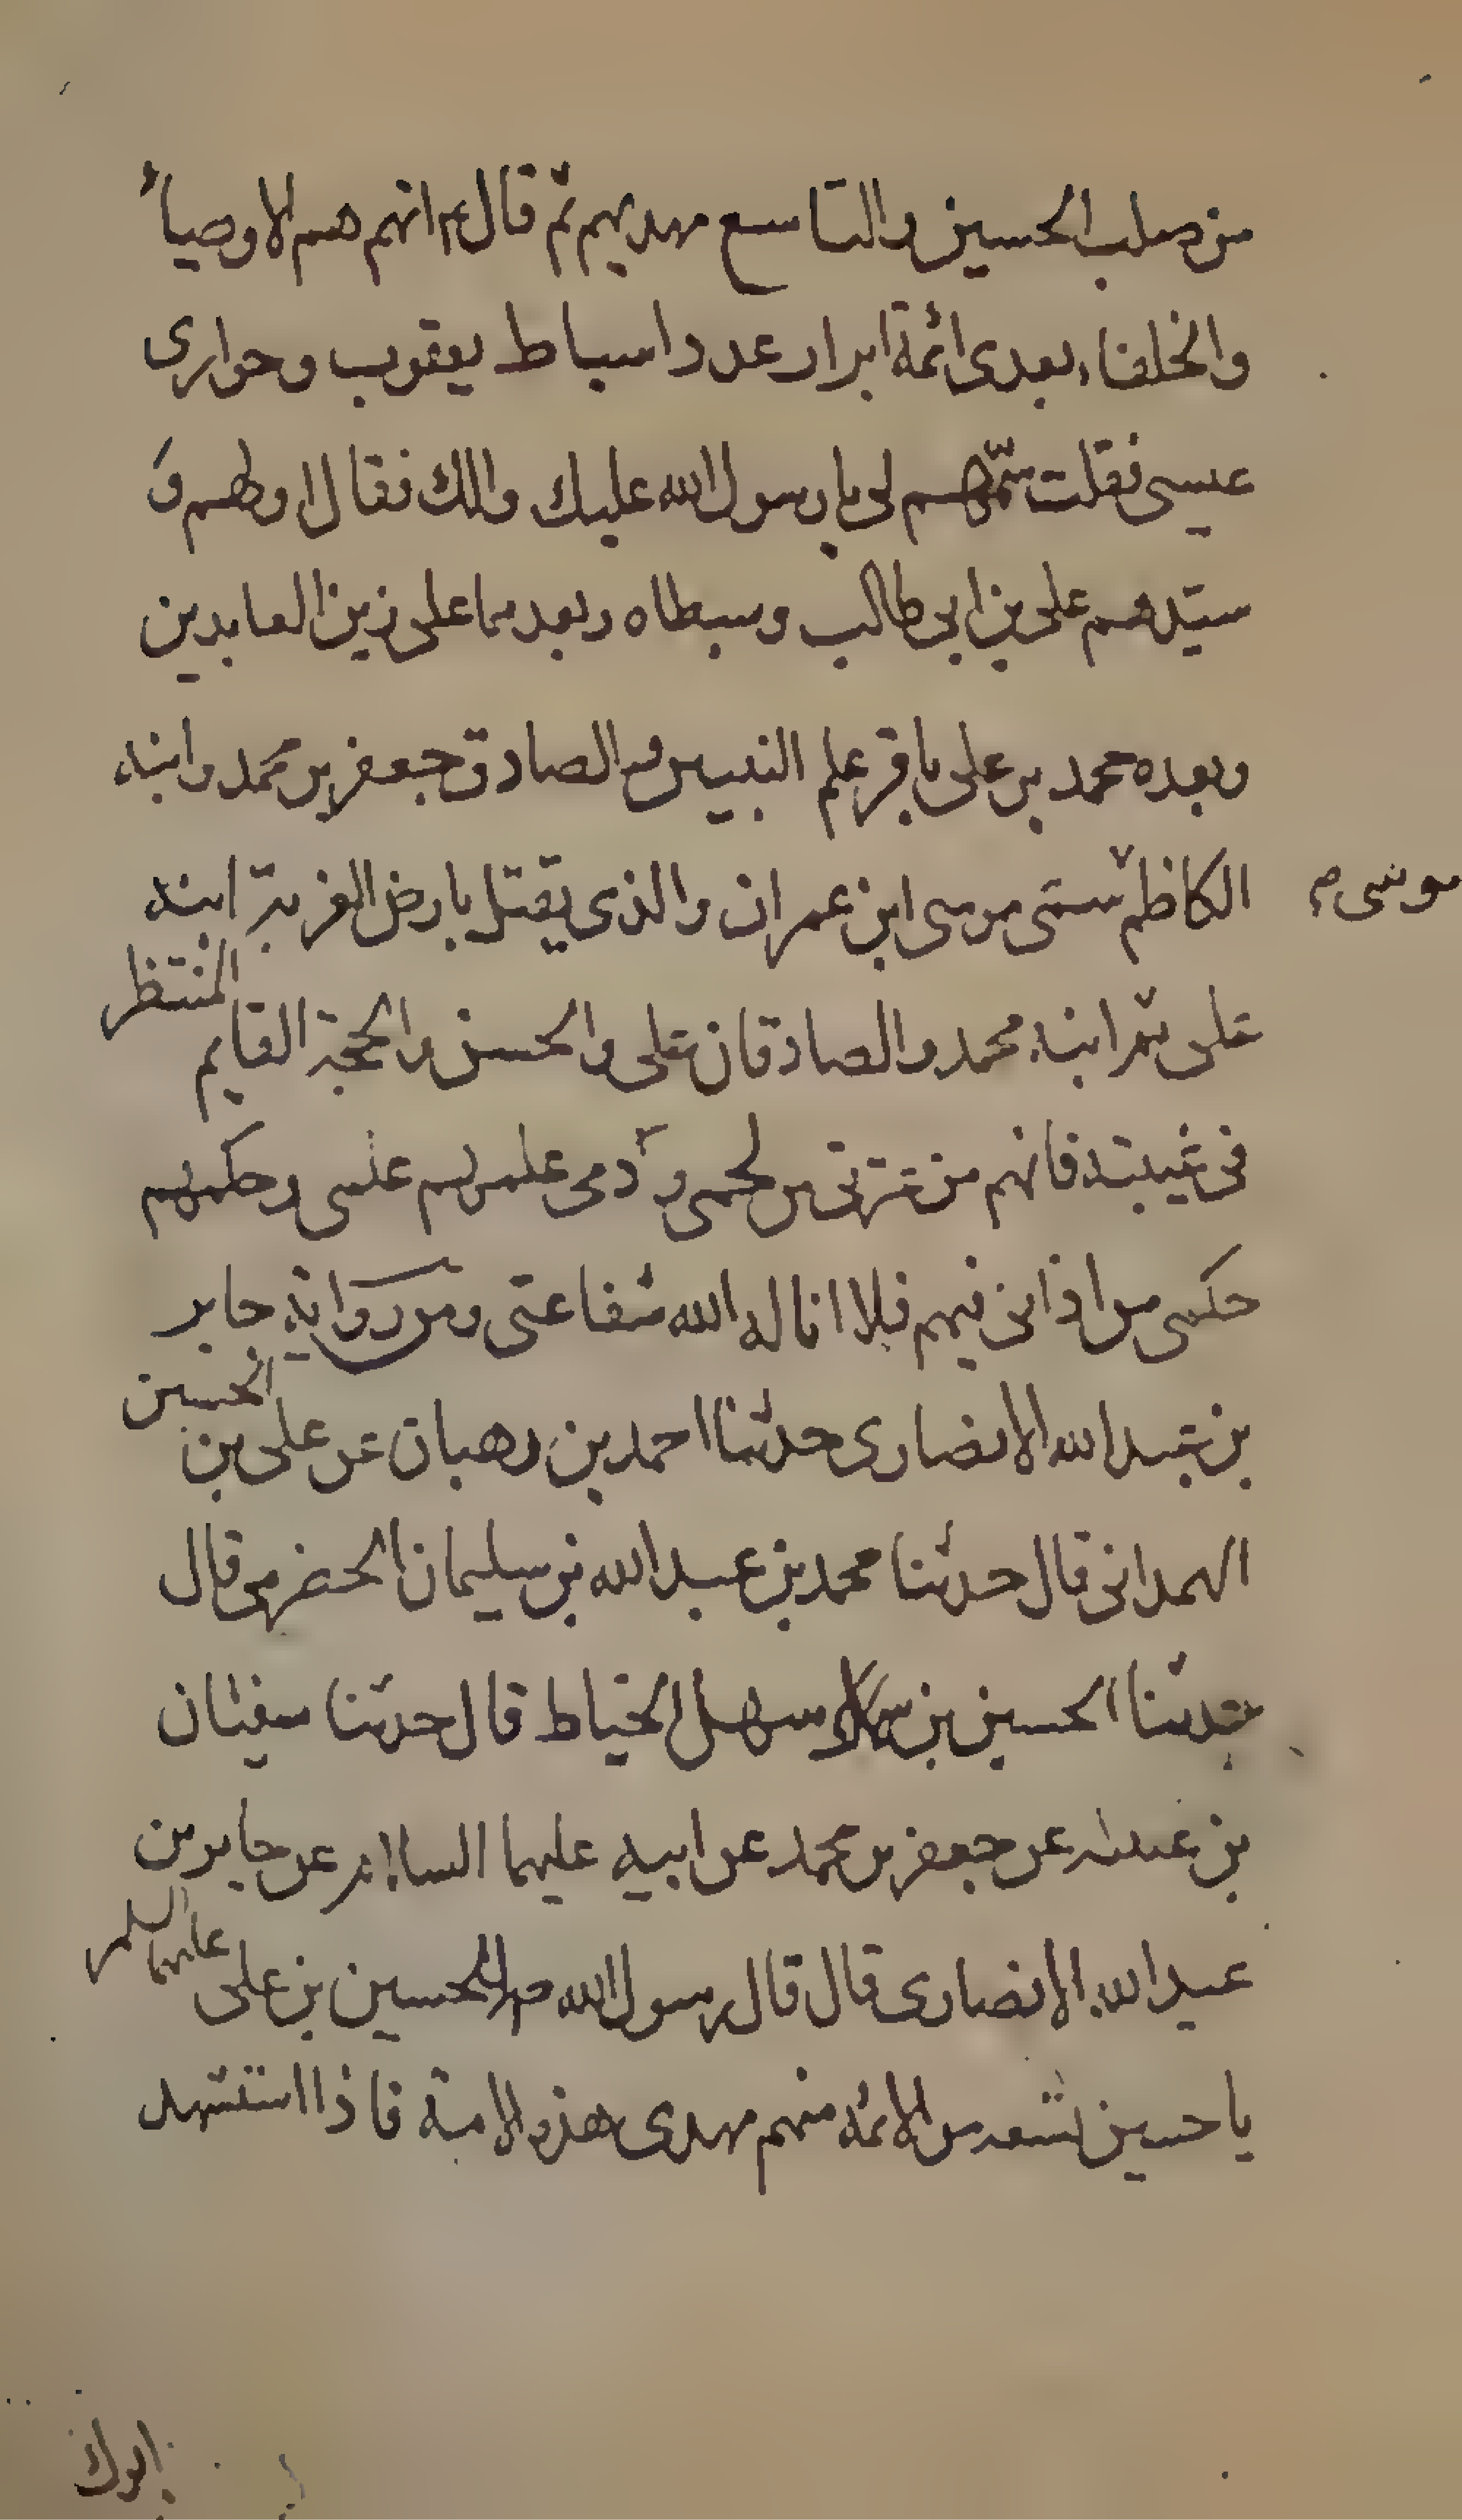 من صلب الحسين والتاسع مهديهم ثم قال انهم هم الاوصياء
والخلفاء بعدى ائمة ابرار عدد اسباط يعقوب وحوارى
عيسى فقلت سمّهم لى يا رسول الله عليك والك فقال اولهم و
سيّدهم على بن ابى طالب وسبطاه وبعدهما على زين العابدين
وبعده محمد بن على باقر علم النبيين والصادق جعفر بن محمد وابنه
موسى م
الكاظم سمّى موسى ابن عمران والذى يقتل بارض الغربة ابنه
على ثم ابنه محمد والصادقان على والحسن والحجة القايم المنتظر
فى غيبته فانهم من عترتى من لحمى ودمى علمهم علمى وحكمهم
حكمى من اذانى فيهم فلا اناله الله شفاعتى ومن رواية جابر
بن عبد الله الانصارى حدثنا احمد بن وهبان عن على بن الحسين
الهمدانى قال حدثنا محمد بن عبد الله بن سليمان الحضرمى قال
حدثنا الحسين بن سهل الخياط قال حدثنا سفيان
بن عيينه عن جعفر بن محمد عن ابيه عليهما السلام عن جابر بن
عبد الله الانصارى قال قال رسول الله ص للحسين بن على عليهما السلم
يا حسين تسعه من الائمه منهم مهدى هذه الامة فاذا استشهد
ابوك